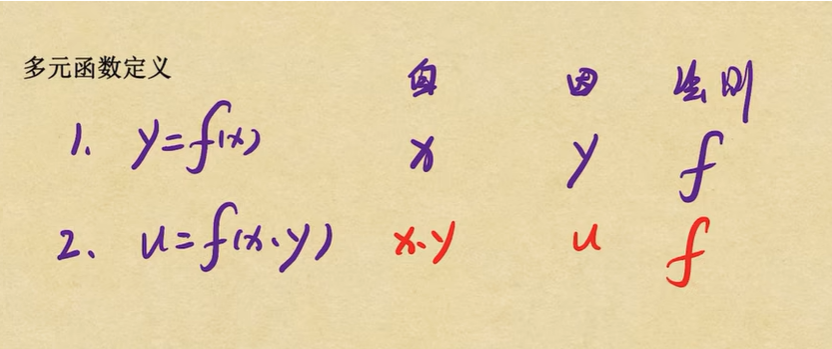 多元函数定义 自 因 法则
1、 y=f(x) x y f
2、 u=f(x、y) x、y u f